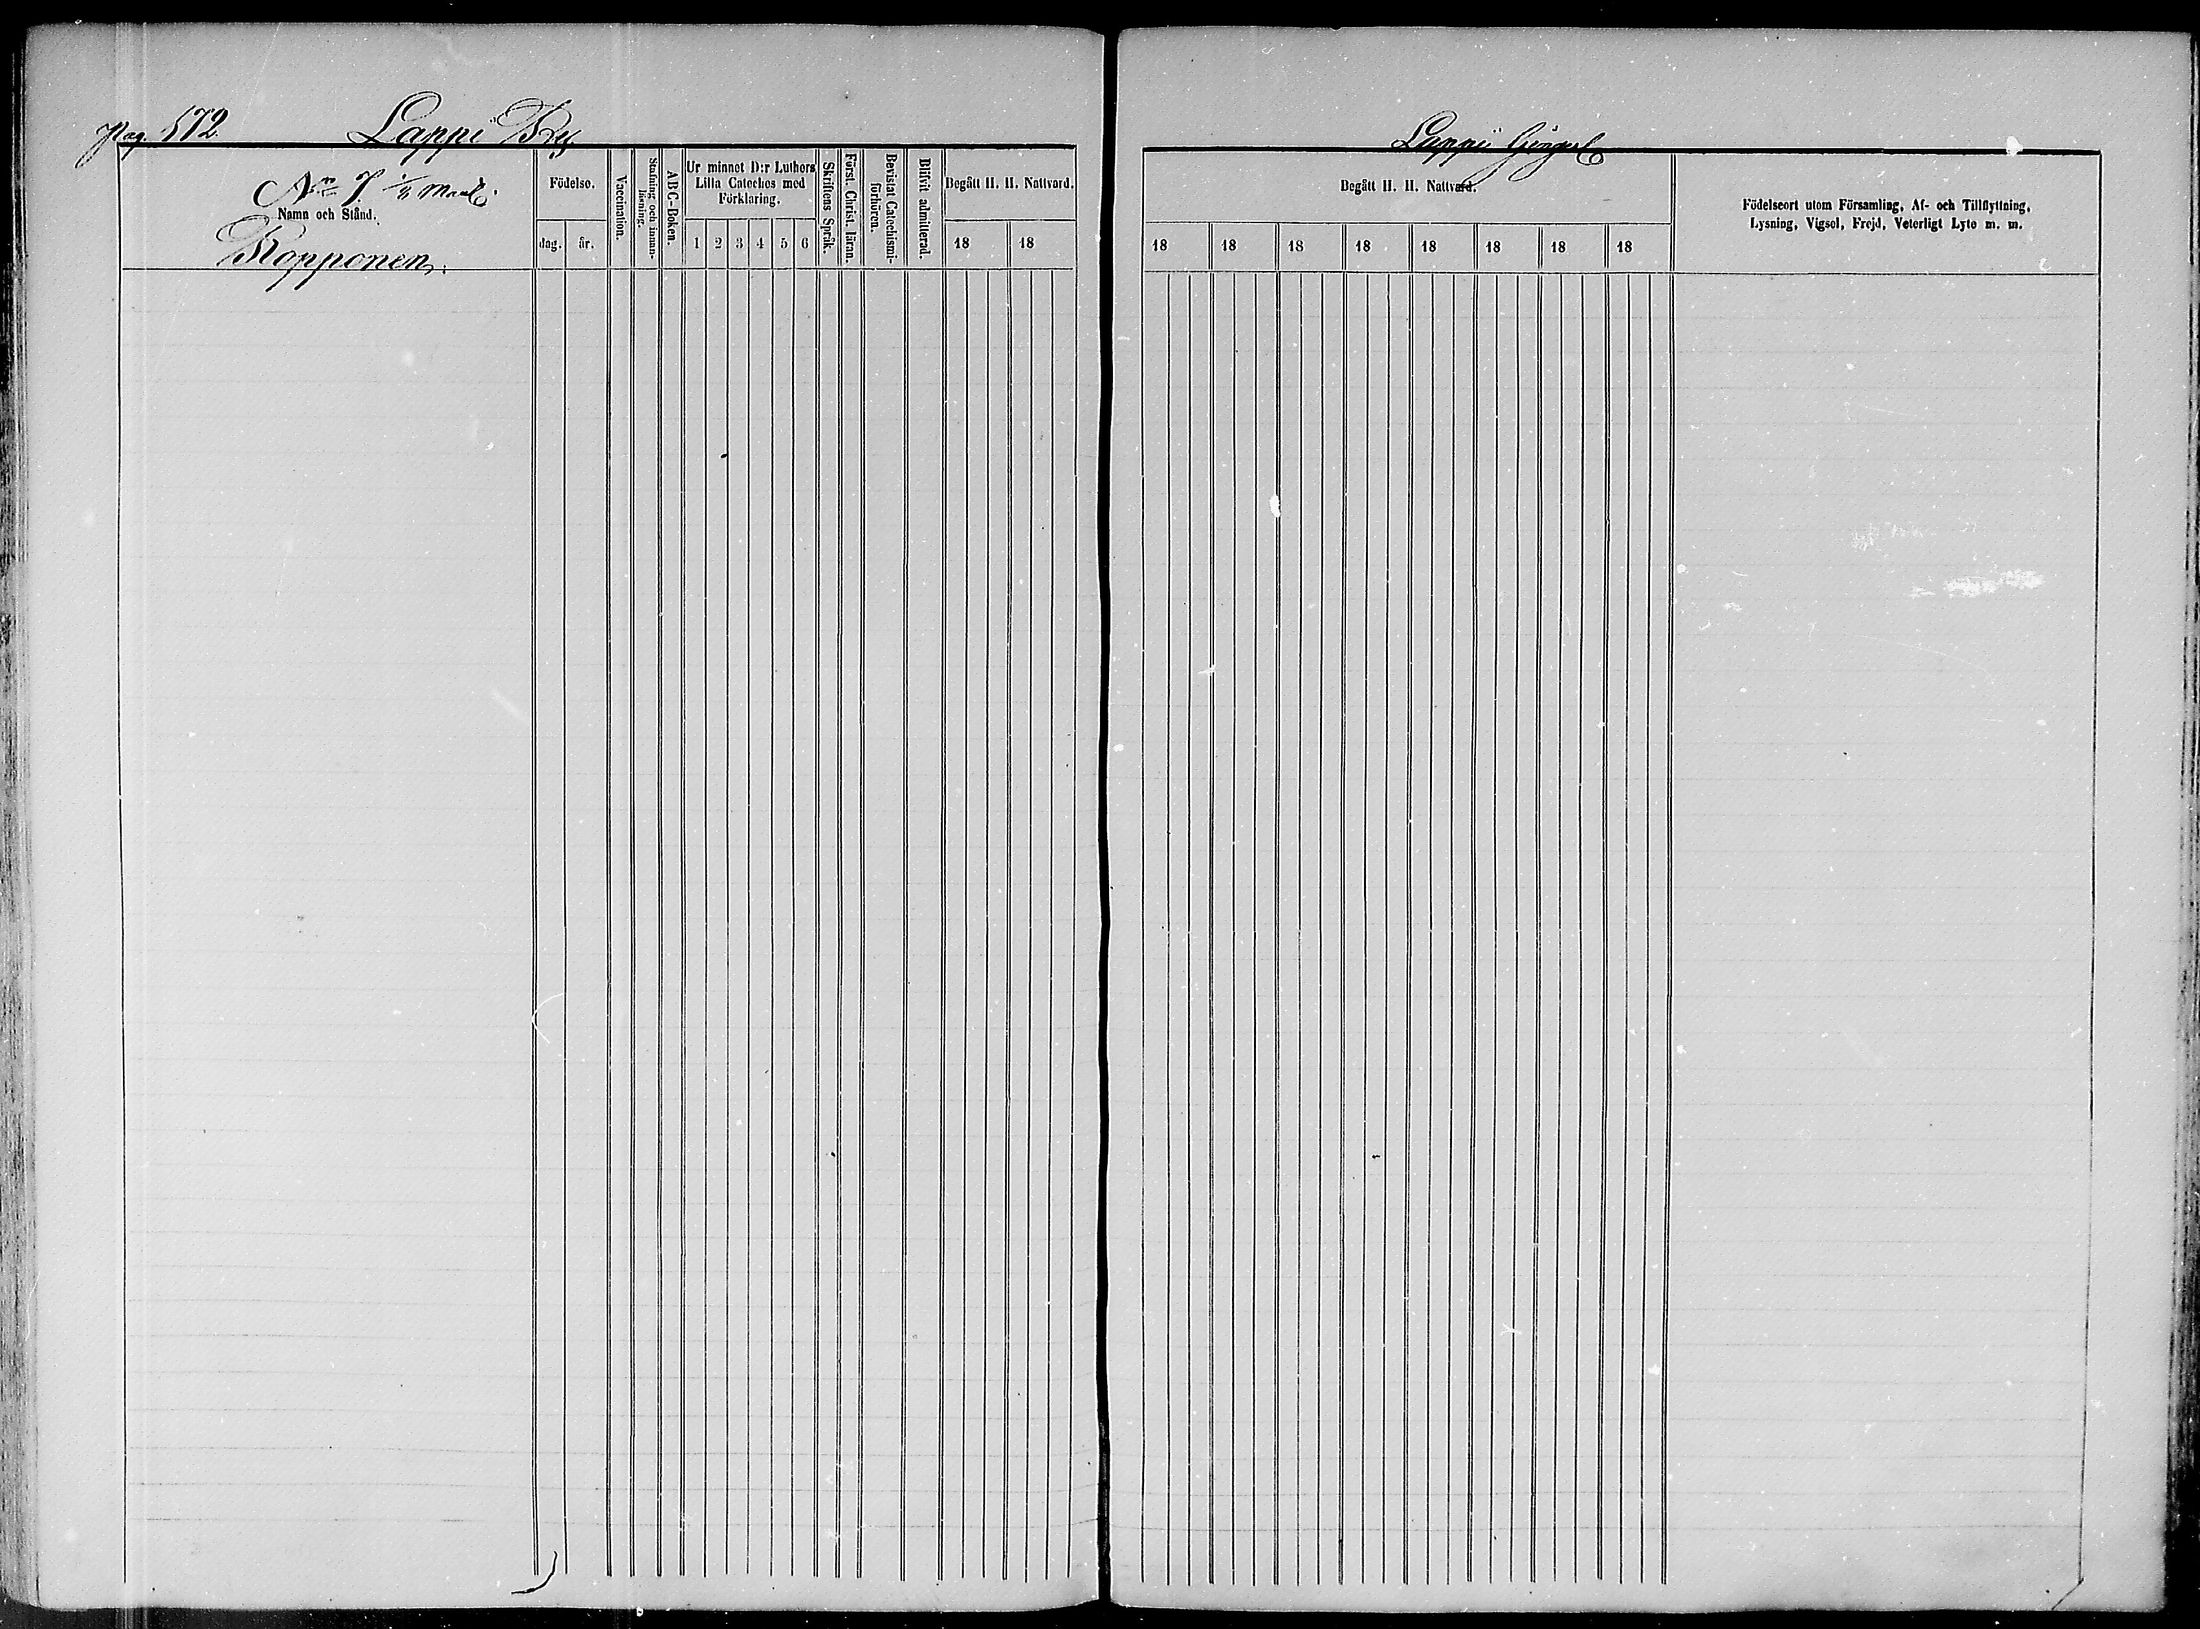 Pag. 572.
Lappi By.
No 7. 1/8 Mantl.
Namn och Stånd.
Kopponen.
Födelse.
dag. år.
Vaccination.
Stafning och innan-
läsning.
ABC-Boken.
Ur minnet D:r Luthers
Lilla Cateches med
Förklaring.
1 2 3 4 5 6
Skriftens Språk.
Först. Christ. läran.
Bevistat Catechismi-
förhören.
Blifvit admitterad.
Begått H. H. Nattvard.
18 18
Lappi
Begått H. H. Nattvard.
18 18 18 18 18 18 18 18
Födelseort utom Församling, Af- och Tillflyttning,
Lysning, Vigsel, Frejd, Veterligt Lyte m. m.